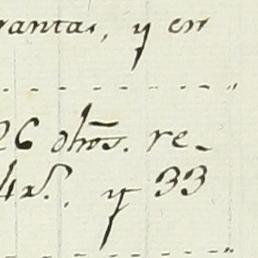 rantas, y en
26 dhos. re-
4 rs. y 33